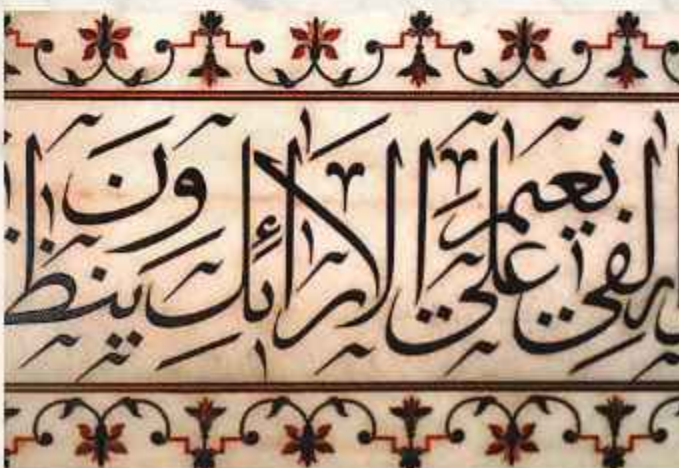 ر لفي نعيم على الارائك ينظرون